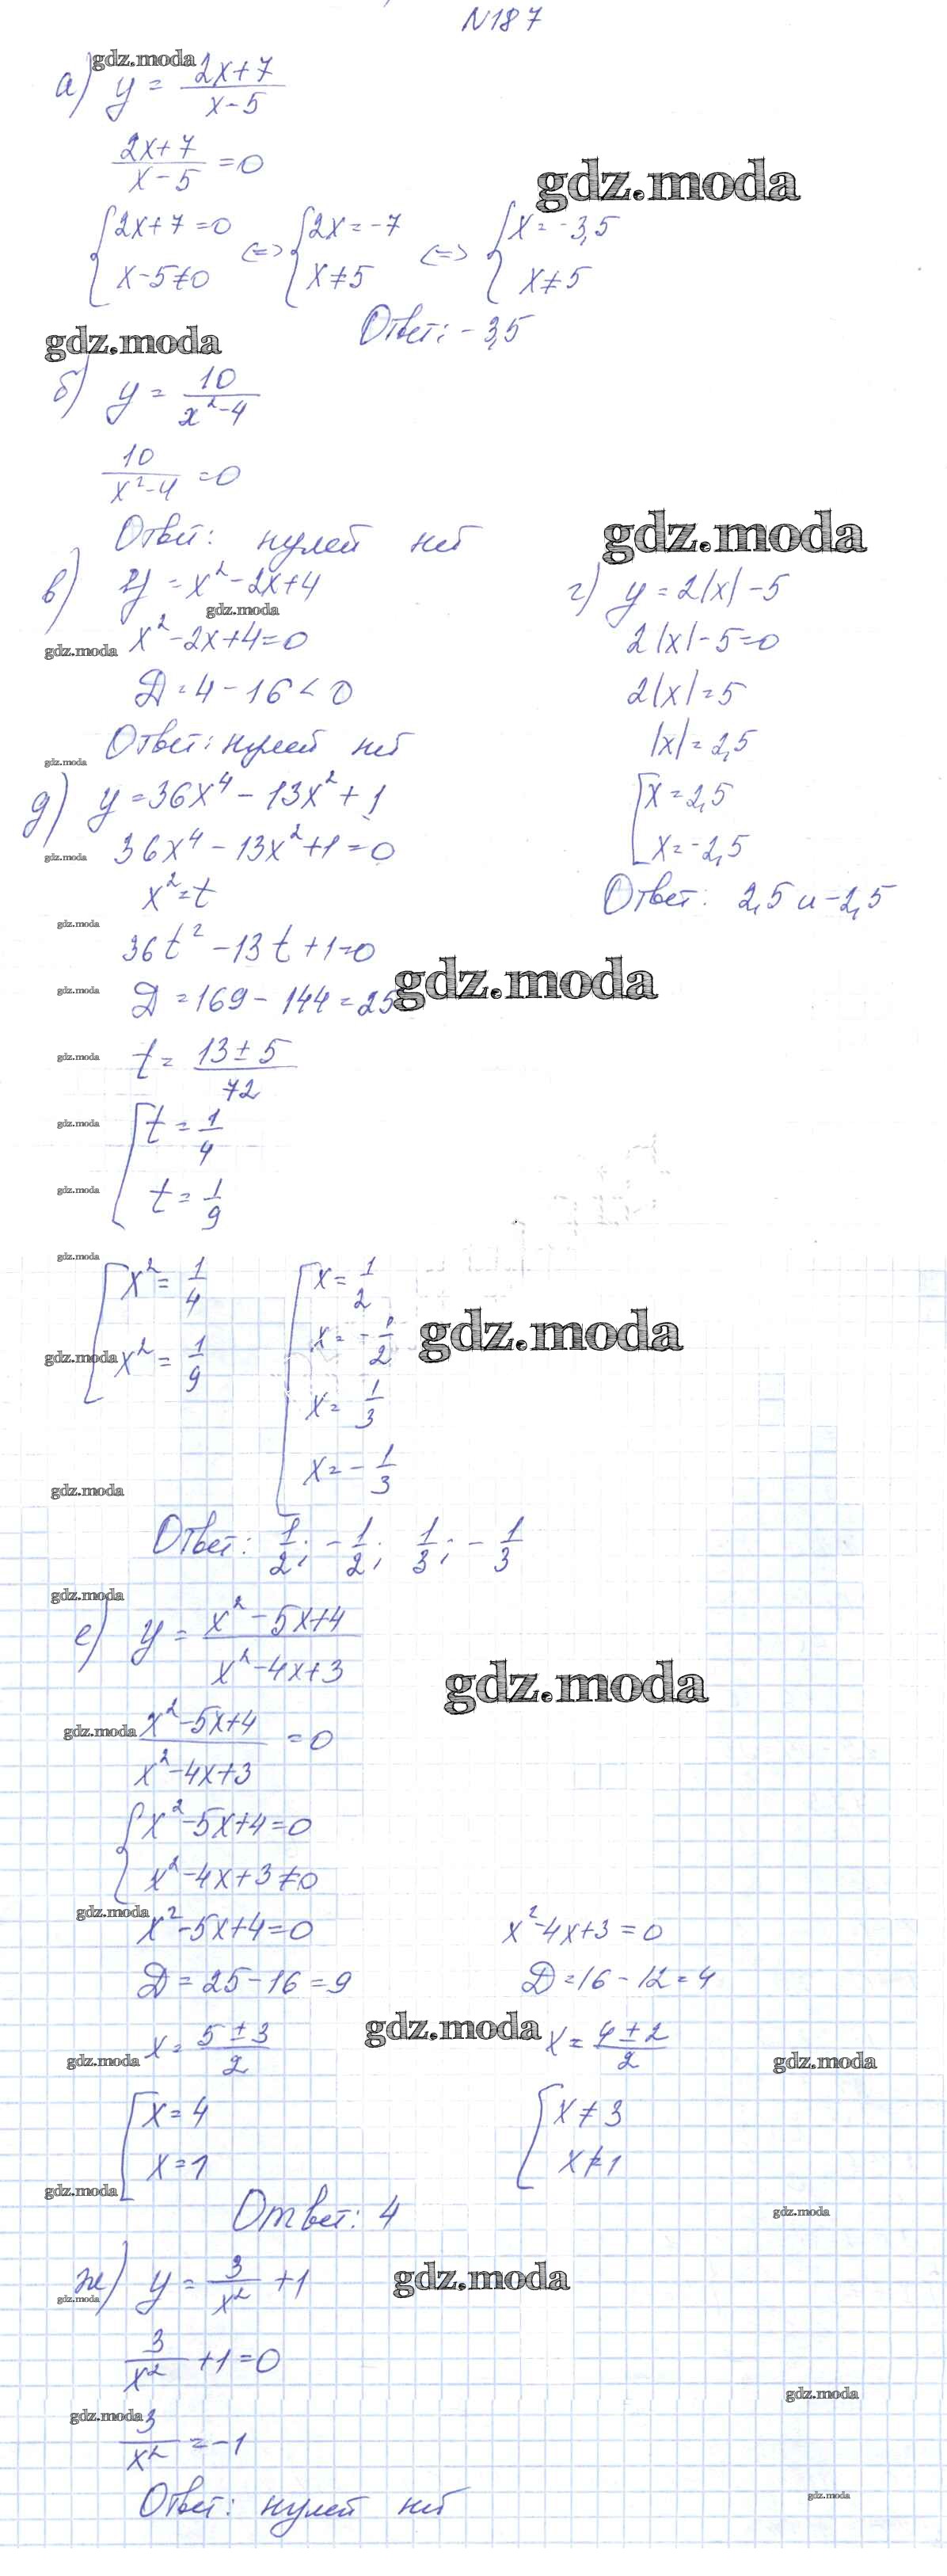 N187
gdz.moda
а) y = (2x+7)/(x-5)
(2x+7)/(x-5) = 0
gdz.moda
{2x+7=0 <=> {2x=-7 <=> {x=-3,5
{x-5≠0 {x≠5 {x≠5
Ответ: -3,5
gdz.moda
б) y = 10/(x²-4)
10/(x²-4) = 0
Ответ: нулей нет
gdz.moda
в) y = x²-2x+4
gdz.moda
gdz.moda x²-2x+4=0
D=4-16<0
Ответ: нулей нет
г) y=2|x|-5
2|x|-5=0
2|x|=5
|x|=2,5
[x=2,5
[x=-2,5
Ответ: 2,5 и -2,5
gdz.moda
д) y=36x⁴-13x²+1
gdz.moda 36x⁴-13x²+1=0
x²=t
gdz.moda
36t²-13t+1=0
gdz.moda D=169-144=25 gdz.moda
gdz.moda t=(13±5)/72
gdz.moda [t=1/4
gdz.moda [t=1/9
gdz.moda
[x²=1/4 [x=1/2
[x=-1/2 gdz.moda
gdz.moda [x²=1/9 [x=1/3
[x=-1/3
gdz.moda
Ответ: 1/2; -1/2; 1/3; -1/3
gdz.moda
е) y=(x²-5x+4)/(x²-4x+3)
gdz.moda
gdz.moda (x²-5x+4)/(x²-4x+3) = 0
{x²-5x+4=0
{x²-4x+3≠0
gdz.moda
x²-5x+4=0 x²-4x+3=0
D=25-16=9 D=16-12=4
gdz.moda x=(5±3)/2 gdz.moda x=(4±2)/2 gdz.moda
[x=4 {x≠3
[x=1 {x≠1
gdz.moda
Ответ: 4 gdz.moda
ж) y=3/x²+1 gdz.moda
gdz.moda
3/x²+1=0
gdz.moda
gdz.moda 3/x²=-1
Ответ: нулей нет gdz.moda